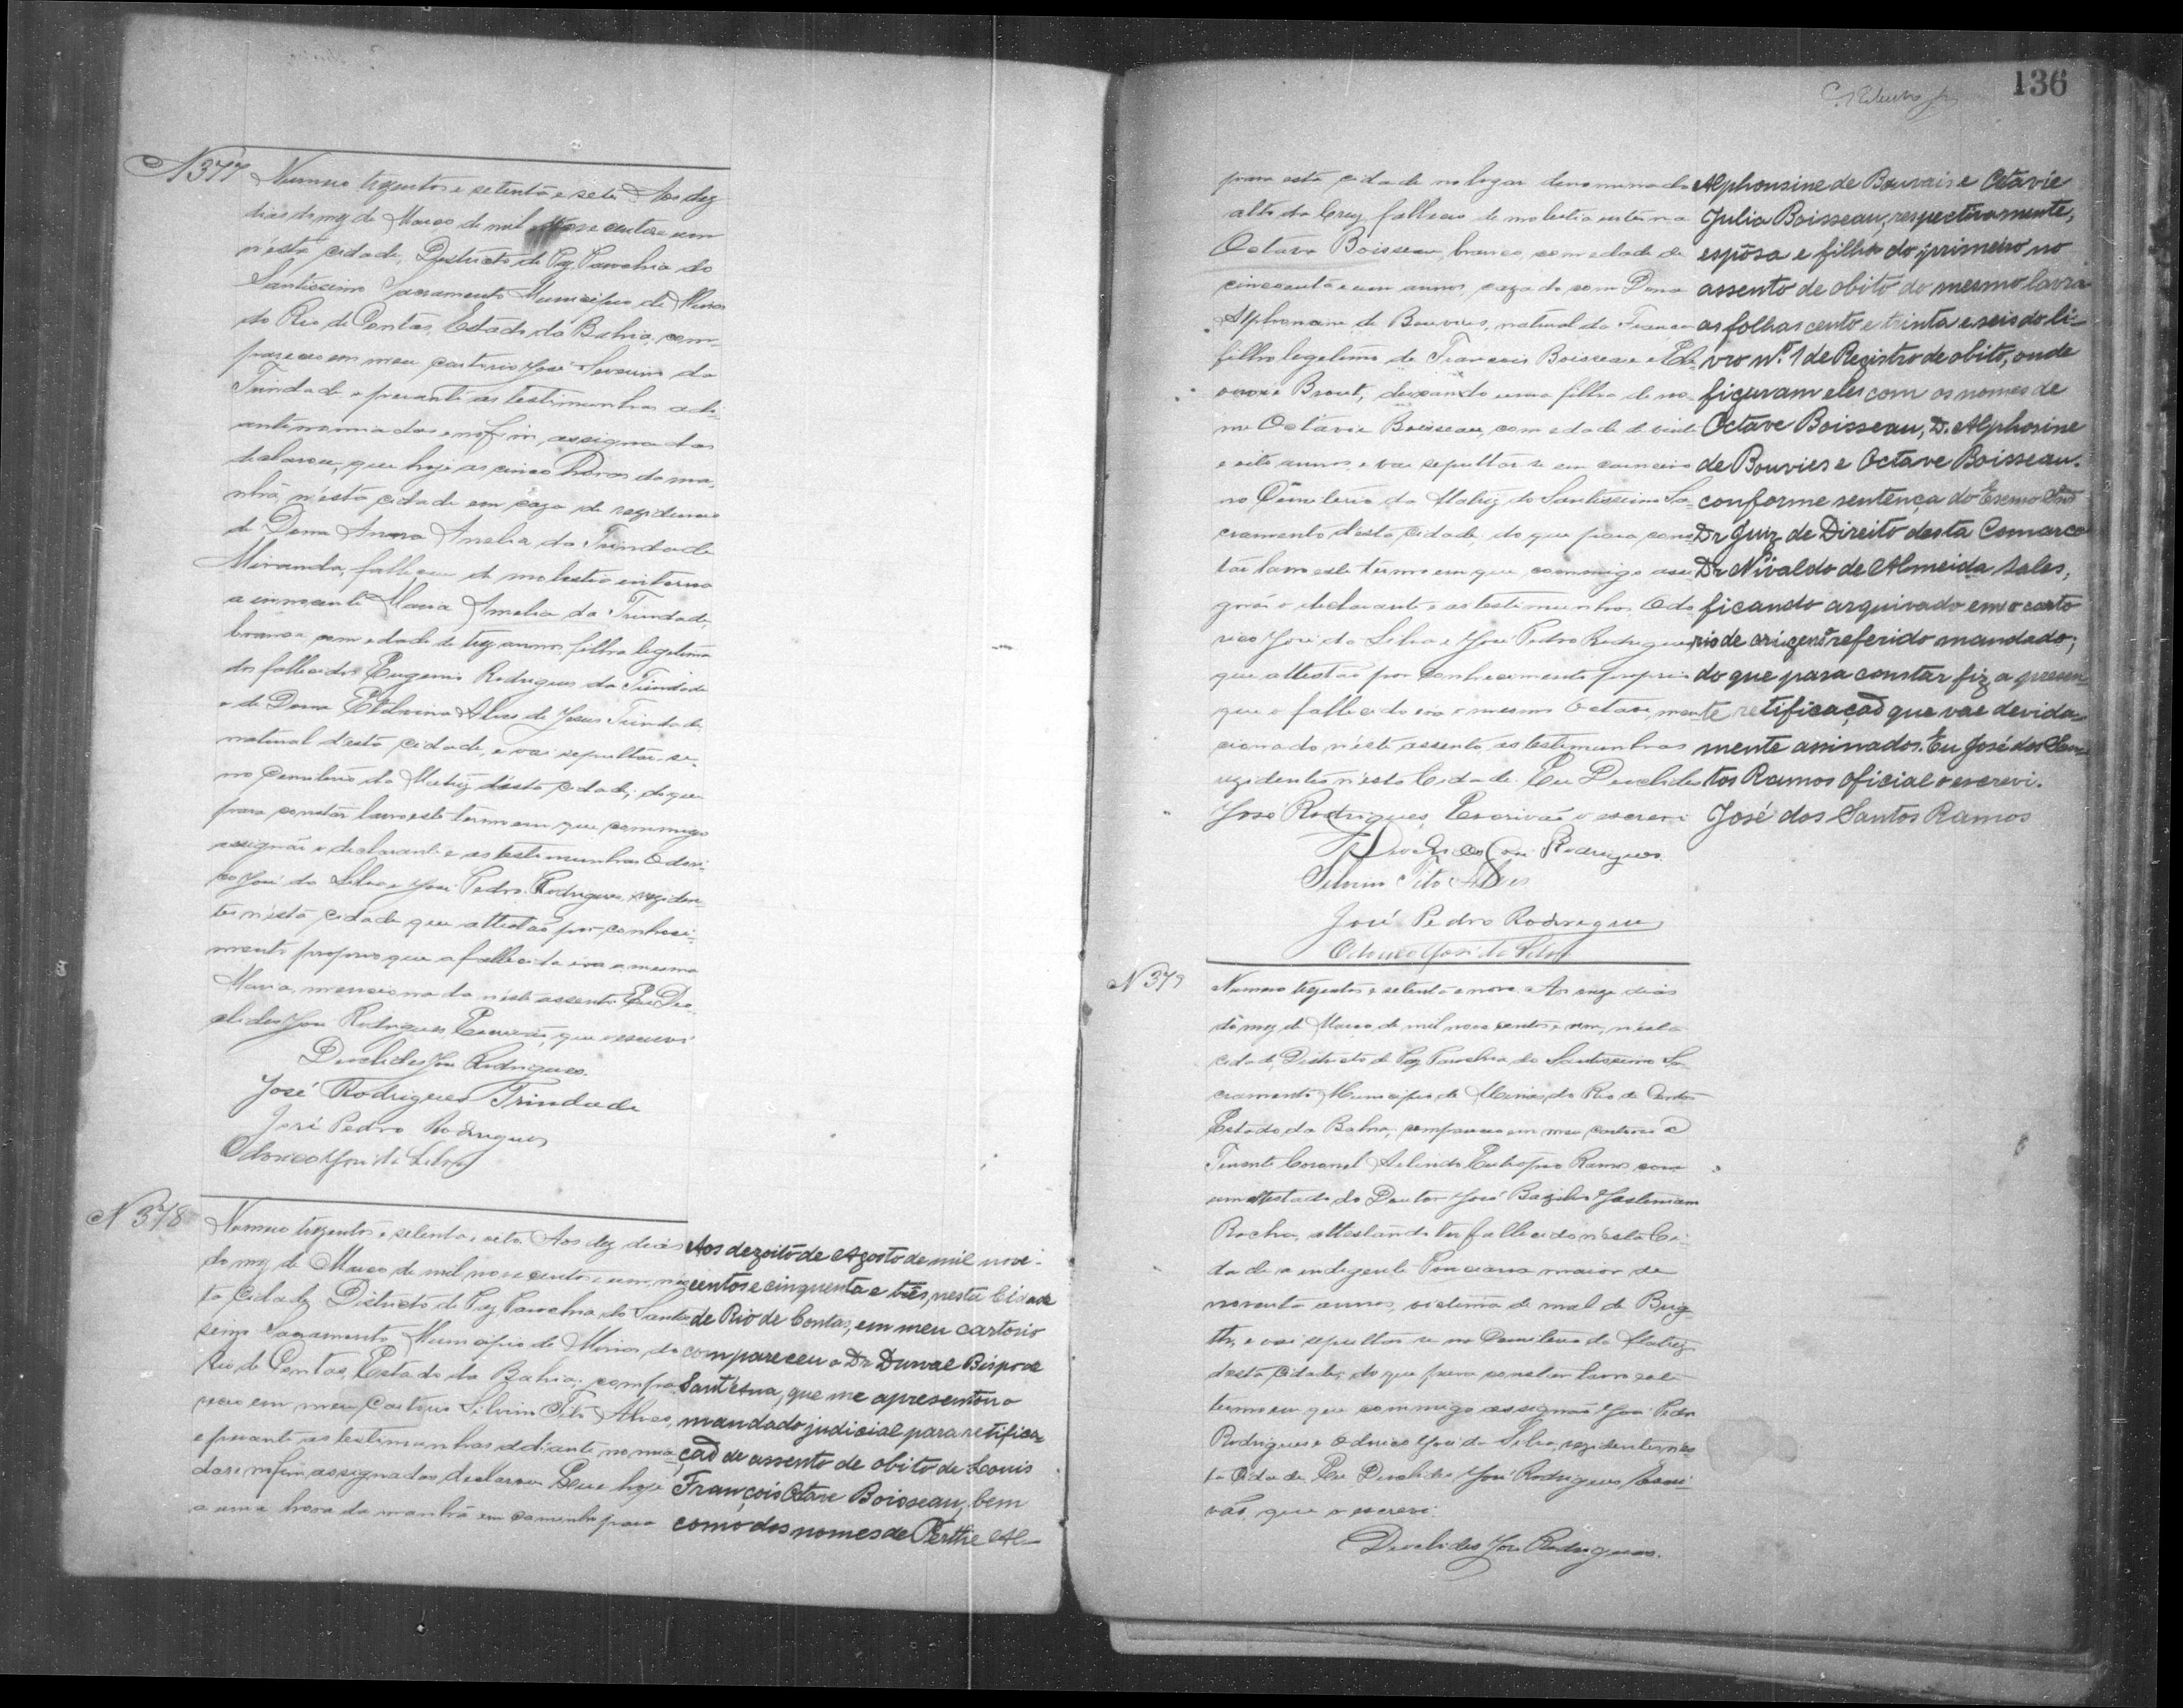 N 377
Numero trezentos e setenta e sete Aos dez
dias do mez de Março de mil nove centos e um
n'esta cidade, Districto de Paz Parochia do
Santissimo Sacramento Municipio de Minas
do Rio de Contas, Estado da Bahia, com-
pareceu em meu cartorio José Severino da
Trindade e perante as testimunhas adi-
ante nomiadas e no fim assignadas
declarou, que hoje as cinco horas da ma-
nhã, n'esta cidade em caza de rezidencia
de Dona Anna Amelia da Trindade
Miranda, falleceu de molestia interna
a innocente Maria Amelia da Trindade,
branca com edade de trez annos, filha legitima
dos fallecidos Eugenio Rodrigues da Trindade
e de Dona Etelvina Alves de Jesus Trindade
natural d'esta cidade, e vai sepultar-se
no Cemiterio da Matriz d'esta cidade; do que
para constar lavro este termo em que commigo
assignão o declarante e as testimunhas Odori-
co José da Silva e José Pedro Rodrigues, reziden-
tes n'esta cidade que attestão por conheci-
mento proprio que a fallecida era a mesma
Maria, mencionada n'este assento. Eu Deo-
clides José Rodrigues, Escrivão, que o escrevi
Deoclides José Rodrigues.
José Rodrigues Trindade
José Pedro Rodrigues
Odorico José da Silva
N 378
Numero trezentos e setenta e oito. Aos dez dias
do mez de Março de mil nove centos e um, n'es-
ta cidade, Districto de Paz Parochia do Santis-
simo Sacramento, Municipio de Minas do
Rio de Contas, Estado da Bahia; compa-
receu em meu Cartorio Silvino Tito Alves,
e perante as testimunhas adiante nomia-
das e no fim assignadas, declarou que hoje
a uma hora da manhã em caminho para
Aos dezoito de Agosto de mil nove-
centos e cinquenta e três, nesta Cidade
de Rio de Contas, em meu cartorio
compareceu o Dr Durval Bispo de
Sant'Ana, que me apresentou o
mandado judicial para retifica-
çaõ de assento de obito de Louis
François Octave Boisseau, bem
como dos nomes de Perttie Al-
136
para esta cidade no lugar denominado
alto da Cruz, falleceu de molestia interna
Octave Boisseau, branco, com edade de
cincoenta e um annos, cazado com Dona
Alphonsine de Bouvies, natural da França
filho legitimo de François Boisseau e
Brout, deixando uma filha de no-
me Octavie Boisseau, com edade de vinte
e oito annos, e vai sepultar-se em carneiro
no Cemiterio da Matriz do Santissimo Sa-
cramento d'esta cidade; do que para cons-
tar lavro este termo em que commigo assi-
gnão o declarante e as testimunhas Odo-
rico José da Silva e José Pedro Rodrigues
que attestão por conhecimento proprio
que o fallecido era o mesmo Octave, men-
cionado n'este assento, as testimunhas
rezidentes n'esta Cidade. Eu Deoclides
José Rodrigues, Escrivão o escrevi
Deoclides José Rodrigues.
Silvino Tito Alves
José Pedro Rodrigues
Odorico José da Silva
Alphonsine de Bouvais e Octavie
Julia Boisseau, respectivamente,
espôsa e filha do primeiro no
assento de obito do mesmo lavra
as folhas cento e trinta e seis do li-
vro nº. 1 de Registro de obito, onde
figuram eles com os nomes de
Octave Boisseau, D. Alphosine
de Bouvies e Octave Boisseau.
conforme sentença do Exmo Snr
Dr Juiz de Direito desta Comarca
Dr Nivaldo de Almeida Sales,
ficando arquivado em o carto
rio de origem o referido mandado;
do que para constar fiz a presen-
te retificaçaõ que vae devida-
mente assinados. Eu José dos San-
tos Ramos oficial o escrevi.
José dos Santos Ramos
N 379
Numero trezentos e setenta e nove. Aos onze dias
do mez de Março de mil nove centos e um, n'esta
cidade, Districto de Paz Parochia do Santissimo Sa-
cramento Municipio de Minas do Rio de Contas
Estado da Bahia, compareceu em meu cartorio o
Tenente Coronel Arlindo Eutropio Ramos com
um attestado do Doutor José Bazilio Justiniano
Rocha, attestando ter fallecido n'esta Ci-
dade a indigente Ponciana maior de
noventa annos, victima de mal de Brig-
th, e vai sepultar-se no Cemiterio da Matriz
desta Cidade; do que para constar lavro este
termo em que commigo assignão José Pedro
Rodrigues e Odorico José da Silva, rezidentes nes-
ta Cidade. Eu Deoclides José Rodrigues, Escri-
vão, que o escrevi.
Deoclides José Rodrigues.